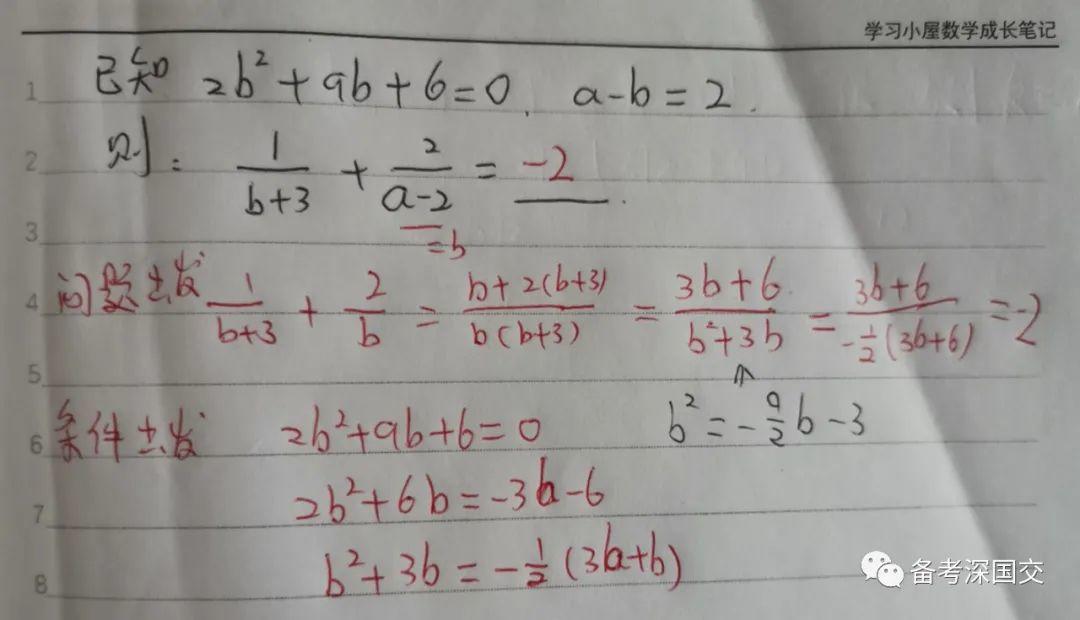 学习小屋数学成长笔记
1 已知 2b²+9b+6=0, a-b=2.
2 则: 1/(b+3) + 2/(a-2) = -2.
3 =b
4 问题出发 1/(b+3) + 2/b = (b+2(b+3))/(b(b+3)) = (3b+6)/(b²+3b) = (3b+6)/(-1/2(3b+6)) = -2
5 ↑
6 条件出发 2b²+9b+6=0 b²=-9/2b-3
7 2b²+6b=-3b-6
8 b²+3b=-1/2(3b+b)
备考深国交